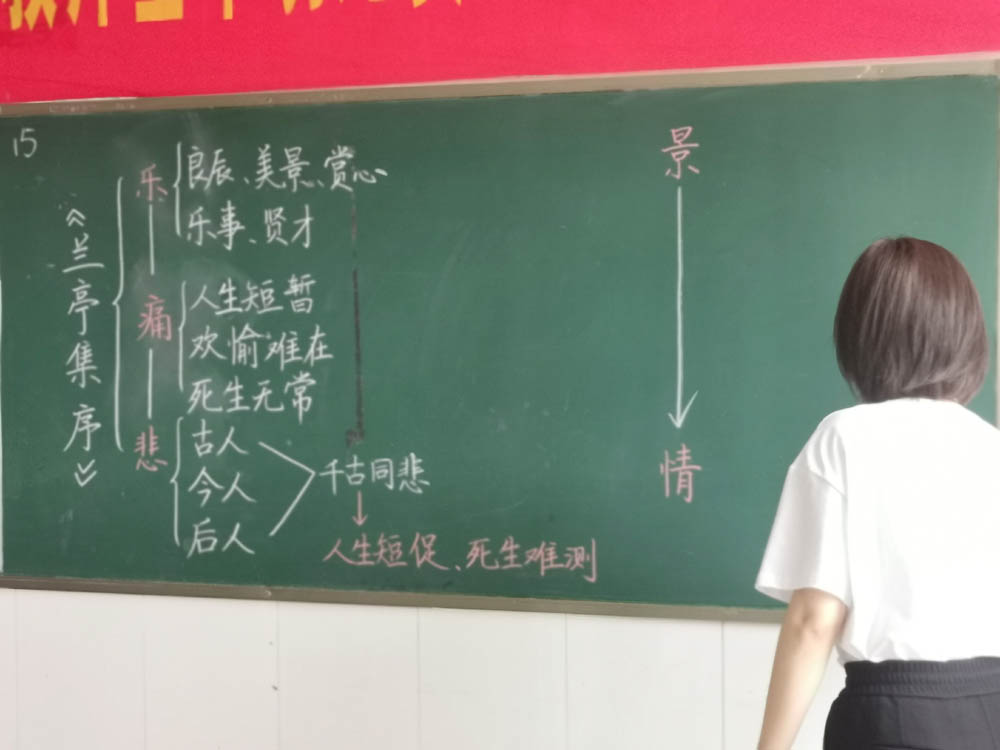 15
《兰亭集序》
乐
良辰、美景、赏心
乐事、贤才
痛
人生短暂
欢愉难在
死生无常
悲
古人
今人
后人
千古同悲
人生短促、死生难测
景
情